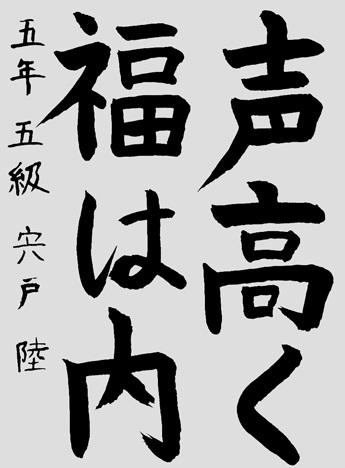 声高く
福は内
五年 五級 宍戸 陸